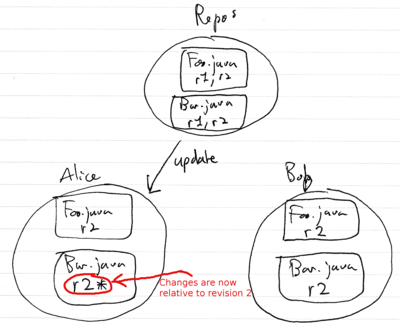 Repos
Foo.java
r1, r2
Bar.java
r1, r2
update
Alice
Foo.java
r2
Bar.java
r2*
Changes are now
relative to revision 2
Bob
Foo.java
r2
Bar.java
r2